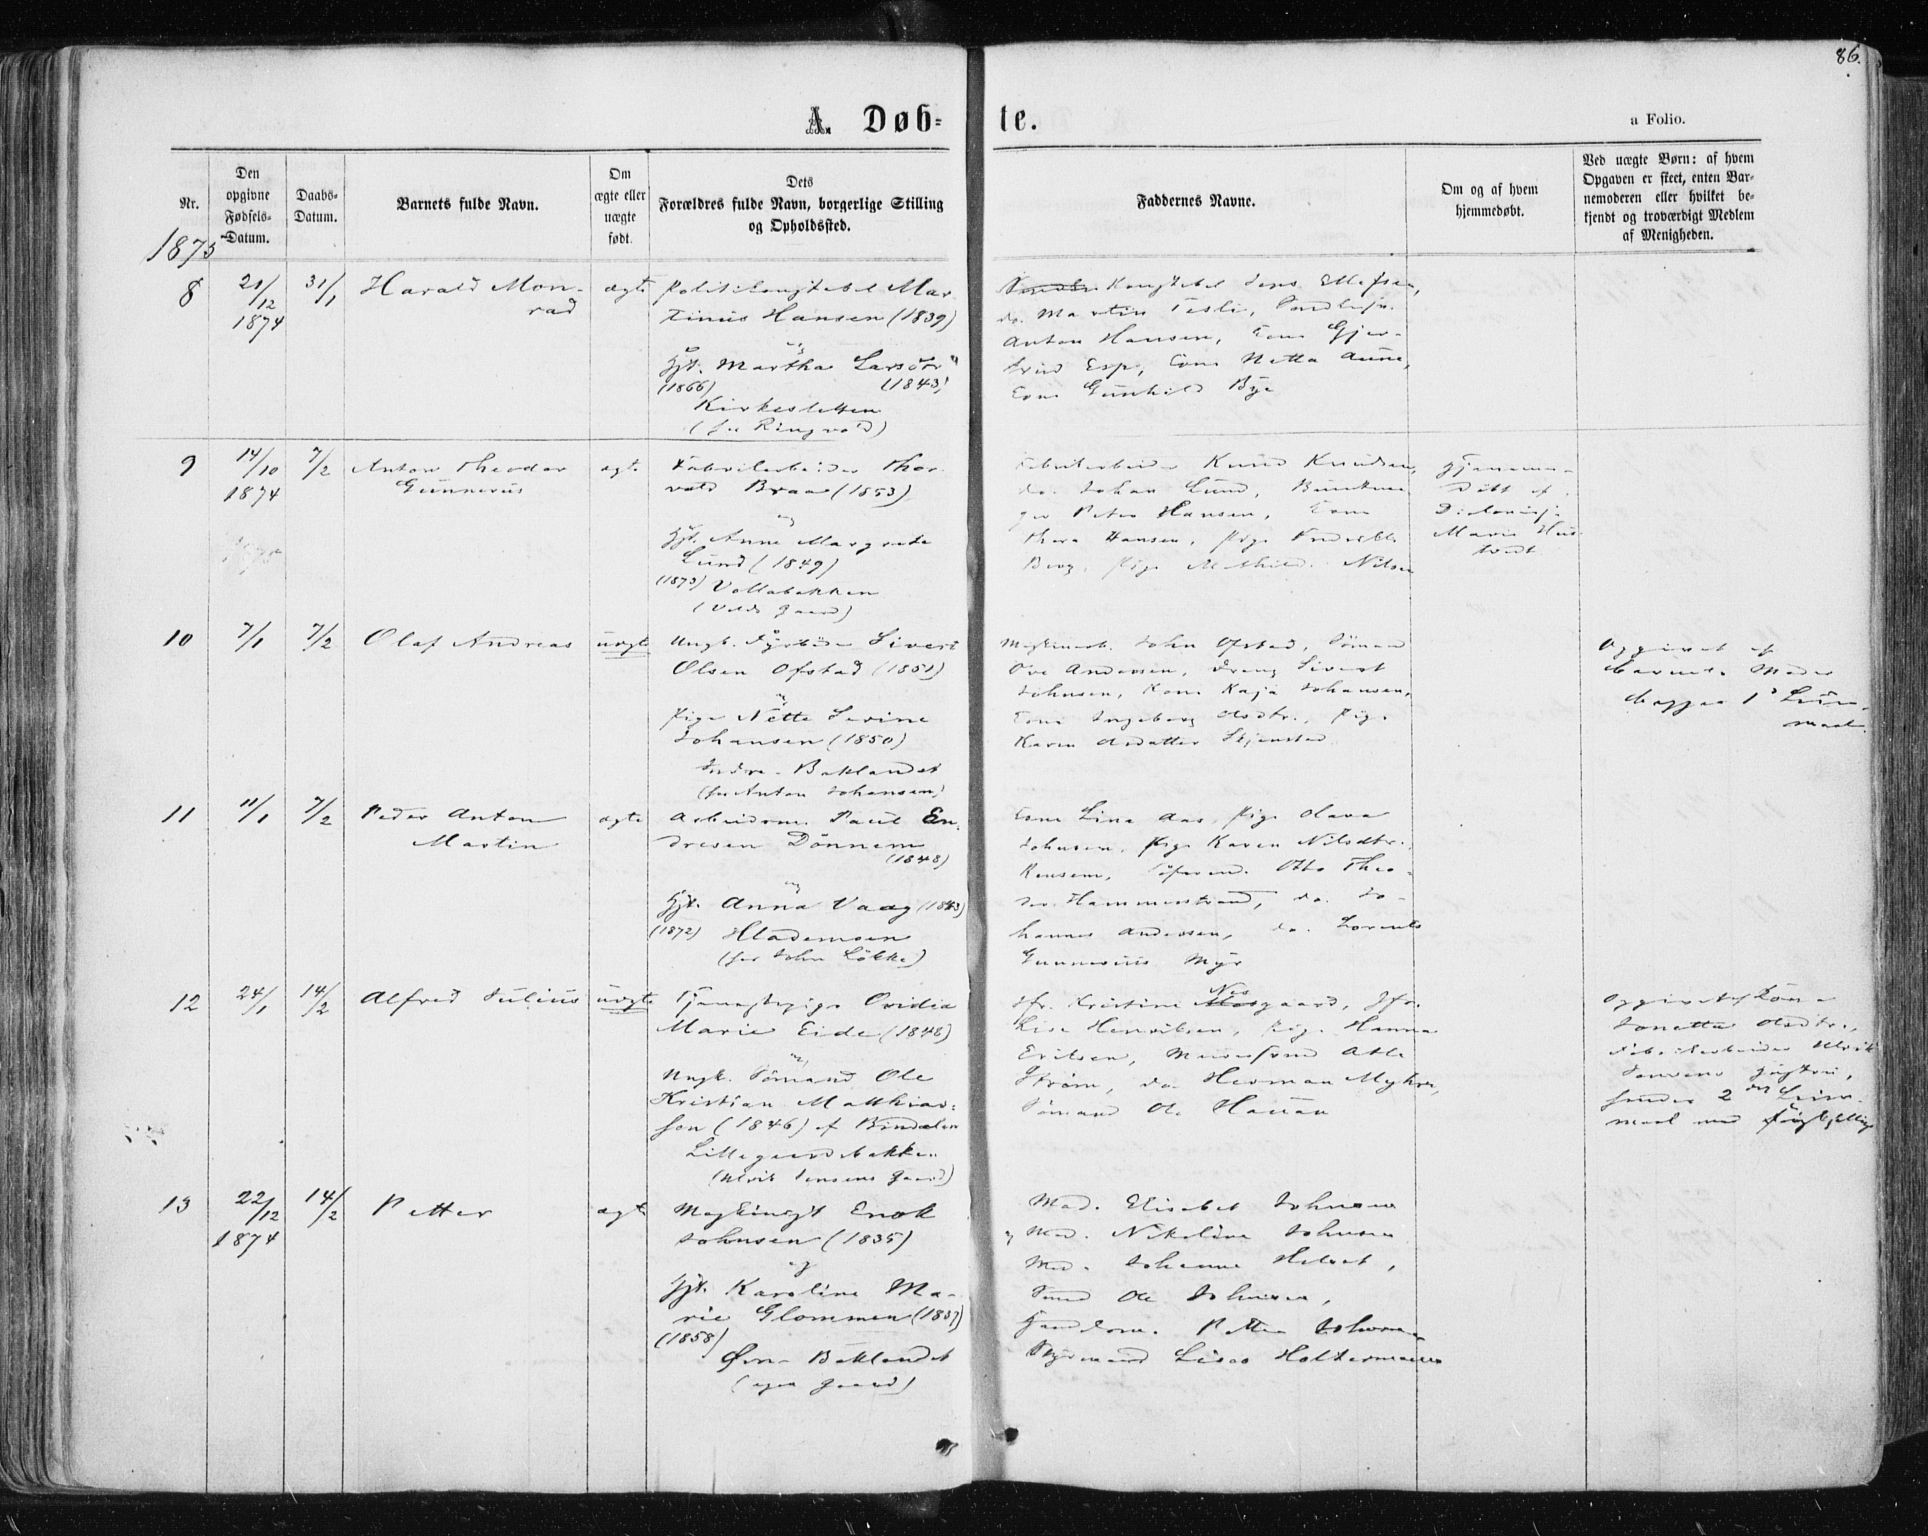 86.
A. Døb- te.
a Folio.
Nr.
Den opgivne Fødsels-Datum.
Daabs-Datum.
Barnets fulde Navn.
Om ægte eller uægte født.
Dets Forældres fulde Navn, borgerlige Stilling og Opholdssted.
Faddernes Navne.
Om og af hvem hjemmedøbt.
Ved uægte Børn: af hvem Opgaven er skeet, enten Barnemoderen eller hvilket bekjendt og troværdigt Medlem af Menigheden.
1875
8
21/12 1874
31/1
Harald Mon-
rad
ægte
Politikonstabel Mar-
tinus Hansen (1839)
og
Hst. Martha Larsdtr
(1866) (1843)
Kirkesletten
(hos Ringvold)
Konstabel Jens Ellefsen,
do. Martin Tesli,
Anton Hansen, Kone Gjer-
trud Esp, Kone Netta Aune,
Kone Gunhild Bye
9
14/10 1874
7/2
Anton Theodor
Gunnerus
ægt.
Fabrikarbeider Thor-
vald Braa (1853)
og
Hst. Anne Margrete
Lund (1849)
(1873) Vollabakken
gaard)
Fabrikarbeider Knud Knudsen,
do. Johan Lund,
Peter Hansen, Kone
Thora Hansen, Pige
Berg, Pige Mathilde Nilsen
Hjemme-
døbt af
Marie Hus-
tvedt
10
7/1
7/2
Olaf Andreas
uægte
Ungk. Fyrbøder Sivert
Olsen Ofstad (1851)
og
Pige Nette Serine
Johansen (1850)
Indre Baklandet
(hos Anton Johansen)
John Ofstad, Sömand
Ove Andersen, Dreng Sivert
Johnsen, Kone Kaja Johansen,
Kone Ingeborg Olsdtr., Pige
Karen Olsdatter Stjenstad
Opgivet af
Barnets Moder
Begges 1ste Leier-
maal
11
11/1
7/2
Peder Anton
Martin
ægte
Arbeidsm. Paul En-
dresen Dönnem
(1848)
og
Hst. Anna Vaag (1843)
(1872) Hlademoen
(hos John Løkke)
Kone Lina Aas, Pige Olava
Johnsen, Pige Karen Nilsdtr.
Otto Theo-
dor Hammerstrand, do. Jo-
hannes Andersen, do. Lorents
Gunnerius Myr
12
24/1
14/2
Alfred Julius
uægte
Tjenestepige Ovidia
Marie Eide (1848)
og
Ungk. Sömand Ole
Kristian Matthias-
sen (1846) af Bindalen
Lillegaardsbakken
(Ulrik Jensens gaard)
Jfr. Kristine Nesgaard, Jfr.
Lise Henriksen, Pige Hanna
Eriksen, Murersvend Atle
Strøm, do Herman Myhre,
Sömand Ole Hauan
Opgivet af Kone
Jonetta Olsdtr.,
Fabrikarbeider Ulrik
Jensens Hustru,
hendes 2det Leier-
maal
13
22/12 1874
14/2
Petter
ægte
Maskinist Enok
Johnsen (1835)
og
Hst. Karoline Ma-
rie Glommen (1837)
(1858)
Øvre Baklandet
(egen gaard)
Mad. Elisabet Johnsen
Mad. Nikoline Johnsen
Mad. Johanne
Ole Johnsen,
Petter Johnsen
Styrmand Holtermann